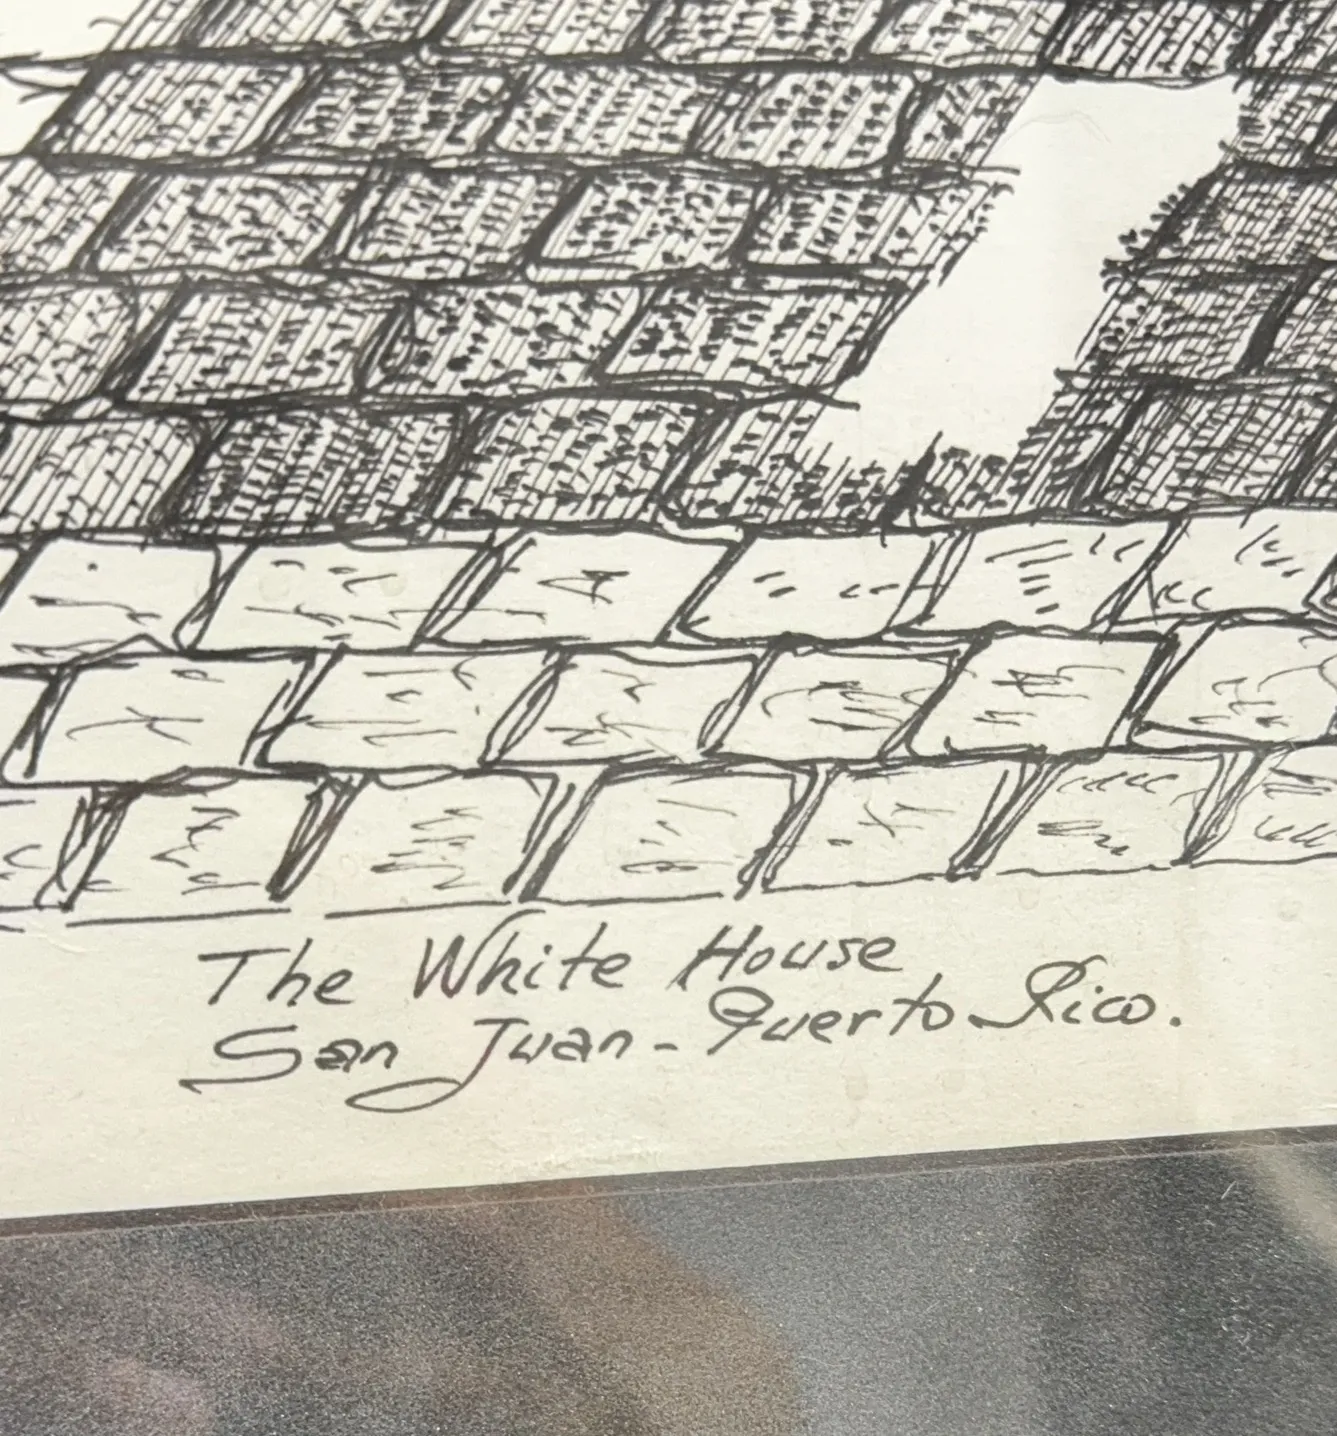 The White House
San Juan - Puerto Rico.